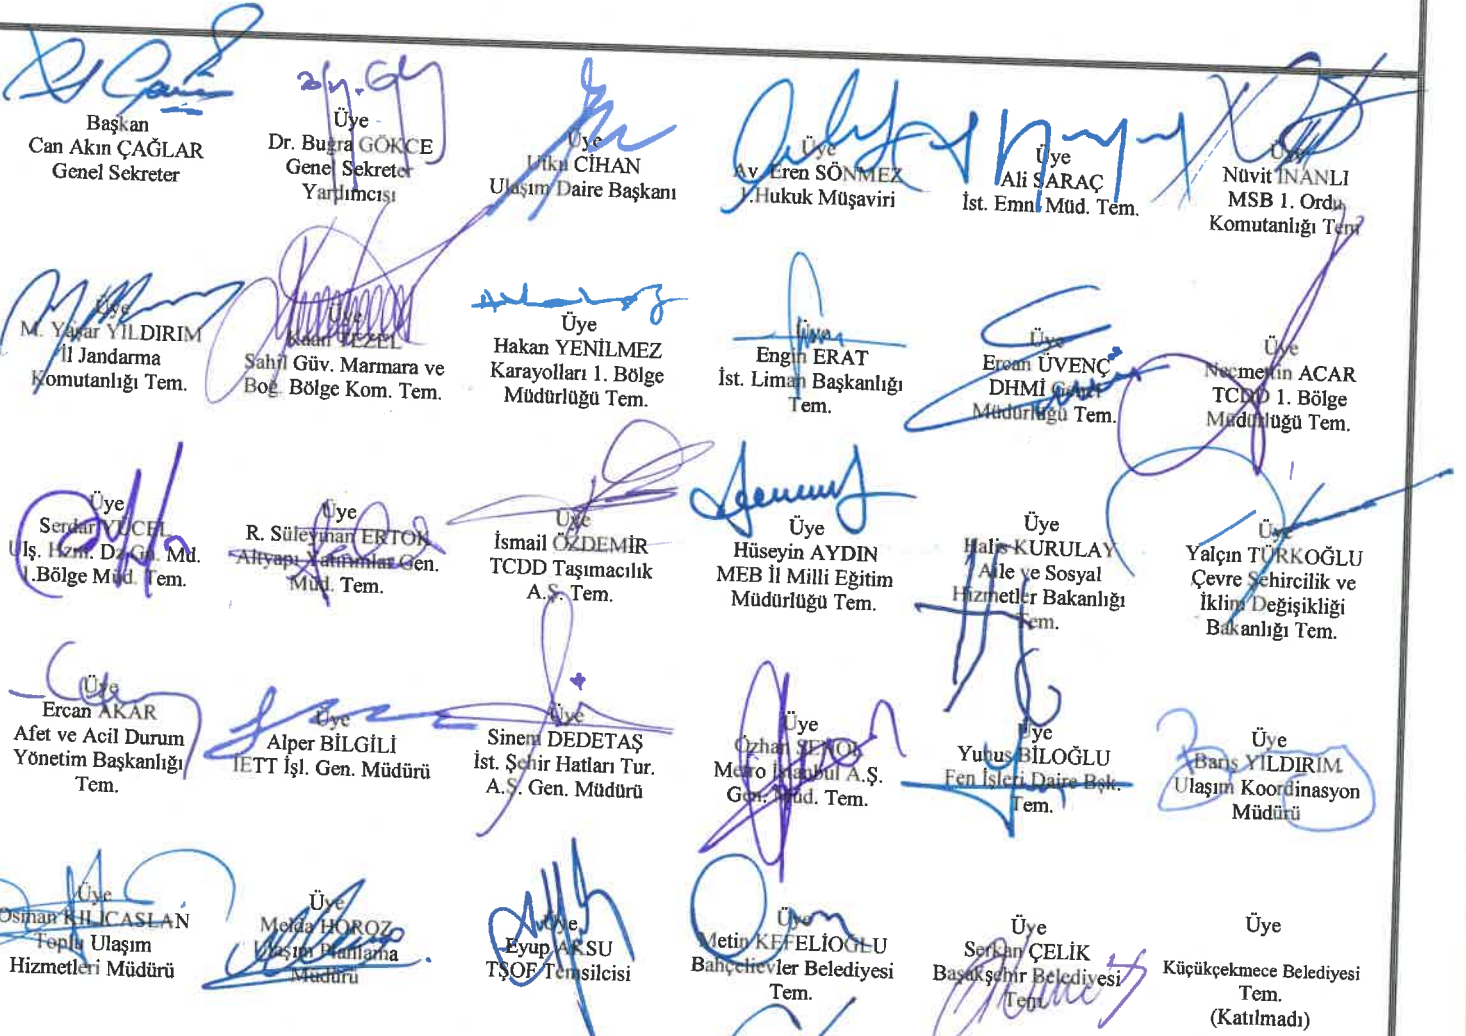 Başkan
Can Akın ÇAĞLAR
Genel Sekreter
Üye
Dr. Buğra GÖKCE
Genel Sekreter
Yardımcısı
Üye
Utku CİHAN
Ulaşım Daire Başkanı
Üye
Av. Eren SÖNMEZ
1.Hukuk Müşaviri
Üye
Ali SARAÇ
İst. Emni. Müd. Tem.
Üye
Nüvit İNANLI
MSB 1. Ordu
Komutanlığı Tem
Üye
M. Yaşar YILDIRIM
İl Jandarma
Komutanlığı Tem.
Üye
Kaan TEZEL
Sahil Güv. Marmara ve
Boğ. Bölge Kom. Tem.
Üye
Hakan YENİLMEZ
Karayolları 1. Bölge
Müdürlüğü Tem.
Üye
Engin ERAT
İst. Liman Başkanlığı
Tem.
Üye
Ercan ÜVENÇ
DHMİ Genel
Müdürlüğü Tem.
Üye
Necmettin ACAR
TCDD 1. Bölge
Müdürlüğü Tem.
Üye
Serdar YÜCEL
Ulş. Hzm. Dz. Gn. Md.
1.Bölge Müd. Tem.
Üye
R. Süleyman ERTOK
Altyapı Yatırımlar Gen.
Müd. Tem.
Üye
İsmail ÖZDEMİR
TCDD Taşımacılık
A.Ş. Tem.
Üye
Hüseyin AYDIN
MEB İl Milli Eğitim
Müdürlüğü Tem.
Üye
Halis KURULAY
Aile ve Sosyal
Hizmetler Bakanlığı
Tem.
Üye
Yalçın TÜRKOĞLU
Çevre Şehircilik ve
İklim Değişikliği
Bakanlığı Tem.
Üye
Ercan AKAR
Afet ve Acil Durum
Yönetim Başkanlığı
Tem.
Üye
Alper BİLGİLİ
İETT İşl. Gen. Müdürü
Üye
Sinem DEDETAŞ
İst. Şehir Hatları Tur.
A.Ş. Gen. Müdürü
Üye
Özhan ŞENOL
Metro İstanbul A.Ş.
Gen. Müd. Tem.
Üye
Yunus BİLOĞLU
Fen İşleri Daire Bşk.
Tem.
Üye
Barış YILDIRIM
Ulaşım Koordinasyon
Müdürü
Üye
Osman KILICASLAN
Toplu Ulaşım
Hizmetleri Müdürü
Üye
Melda HOROZ
Ulaşım Planlama
Müdürü
Üye
Eyup AKSU
TŞOF Temsilcisi
Üye
Metin KEFELİOĞLU
Bahçelievler Belediyesi
Tem.
Üye
Serkan ÇELİK
Başakşehir Belediyesi
Tem.
Üye
Küçükçekmece Belediyesi
Tem.
(Katılmadı)